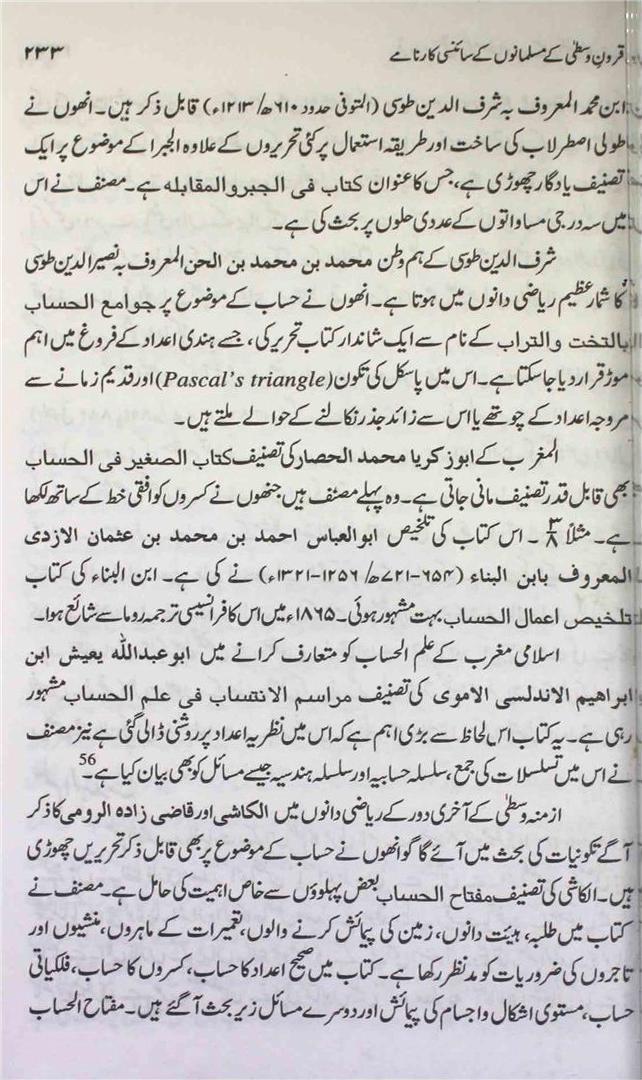 قرونِ وسطیٰ کے مسلمانوں کے سائنسی کارنامے ۲۳۳
ابن محمد المعروف بہ شرف الدین طوسی (المتوفی حدود ۶۱۰ھ/۱۲۱۳ء) قابل ذکر ہیں۔ انھوں نے
طولی اصطرلاب کی ساخت اور طریقہ استعمال پر کئی تحریروں کے علاوہ الجبرا کے موضوع پر ایک
تصنیف یادگار چھوڑی ہے، جس کا عنوان کتاب فی الجبر والمقابلہ ہے۔ مصنف نے اس
میں سہ درجی مساواتوں کے عددی حلوں پر بحث کی ہے۔
شرف الدین طوسی کے ہم وطن محمد بن محمد بن الحن المعروف بہ نصیر الدین طوسی
کا شمار عظیم ریاضی دانوں میں ہوتا ہے۔ انھوں نے حساب کے موضوع پر جوامع الحساب
بالتخت والتراب کے نام سے ایک شاندار کتاب تحریر کی، جسے ہندی اعداد کے فروغ میں اہم
موڑ قرار دیا جا سکتا ہے۔ اس میں پاسکل کی تکون (Pascal's triangle) اور قدیم زمانے سے
مروجہ اعداد کے چوتھے یا اس سے زائد جذر نکالنے کے حوالے ملتے ہیں۔
المغرب کے ابوزکریا محمد الحصار کی تصنیف کتاب الصغیر فی الحساب
بھی قابل قدر تصنیف مانی جاتی ہے۔ وہ پہلے مصنف ہیں جنھوں نے کسروں کو افقی خط کے ساتھ لکھا
ہے۔ مثلاً ۳/۸ ۔ اس کتاب کی تلخیص ابوالعباس احمد بن محمد بن عثمان الازدی
المعروف بابن البناء (۶۵۴–۷۲۱ھ/۱۲۵۶–۱۳۲۱ء) نے کی ہے۔ ابن البناء کی کتاب
تلخیص اعمال الحساب بہت مشہور ہوئی۔ ۱۸۶۵ء میں اس کا فرانسیسی ترجمہ روما سے شائع ہوا۔
اسلامی مغرب کے علم الحساب کو متعارف کرانے میں ابو عبداللہ یعیش ابن
ابراھیم الاندلسی الاموی کی تصنیف مراسم الانتساب فی علم الحساب مشہور
رہی ہے۔ یہ کتاب اس لحاظ سے بڑی اہم ہے کہ اس میں نظریہ اعداد پر روشنی ڈالی گئی ہے نیز مصنف
نے اس میں تسلسلات کی جمع، سلسلہ حسابیہ اور سلسلہ ہندسیہ جیسے مسائل کو بھی بیان کیا ہے۔56
ازمنہ وسطیٰ کے آخری دور کے ریاضی دانوں میں الکاشی اور قاضی زادہ الرومی کا ذکر
آگے تکونیات کی بحث میں آئے گا گو انھوں نے حساب کے موضوع پر بھی قابل ذکر تحریریں چھوڑی
ہیں۔ الکاشی کی تصنیف مفتاح الحساب بعض پہلوؤں سے خاص اہمیت کی حامل ہے۔ مصنف نے
کتاب میں طلبہ، ہیئت دانوں، زمین کی پیمائش کرنے والوں، تعمیرات کے ماہروں، منشیوں اور
تاجروں کی ضروریات کو مدنظر رکھا ہے۔ کتاب میں صحیح اعداد کا حساب، کسروں کا حساب، فلکیاتی
حساب، مستوی اشکال و اجسام کی پیمائش اور دوسرے مسائل زیر بحث آگئے ہیں۔ مفتاح الحساب